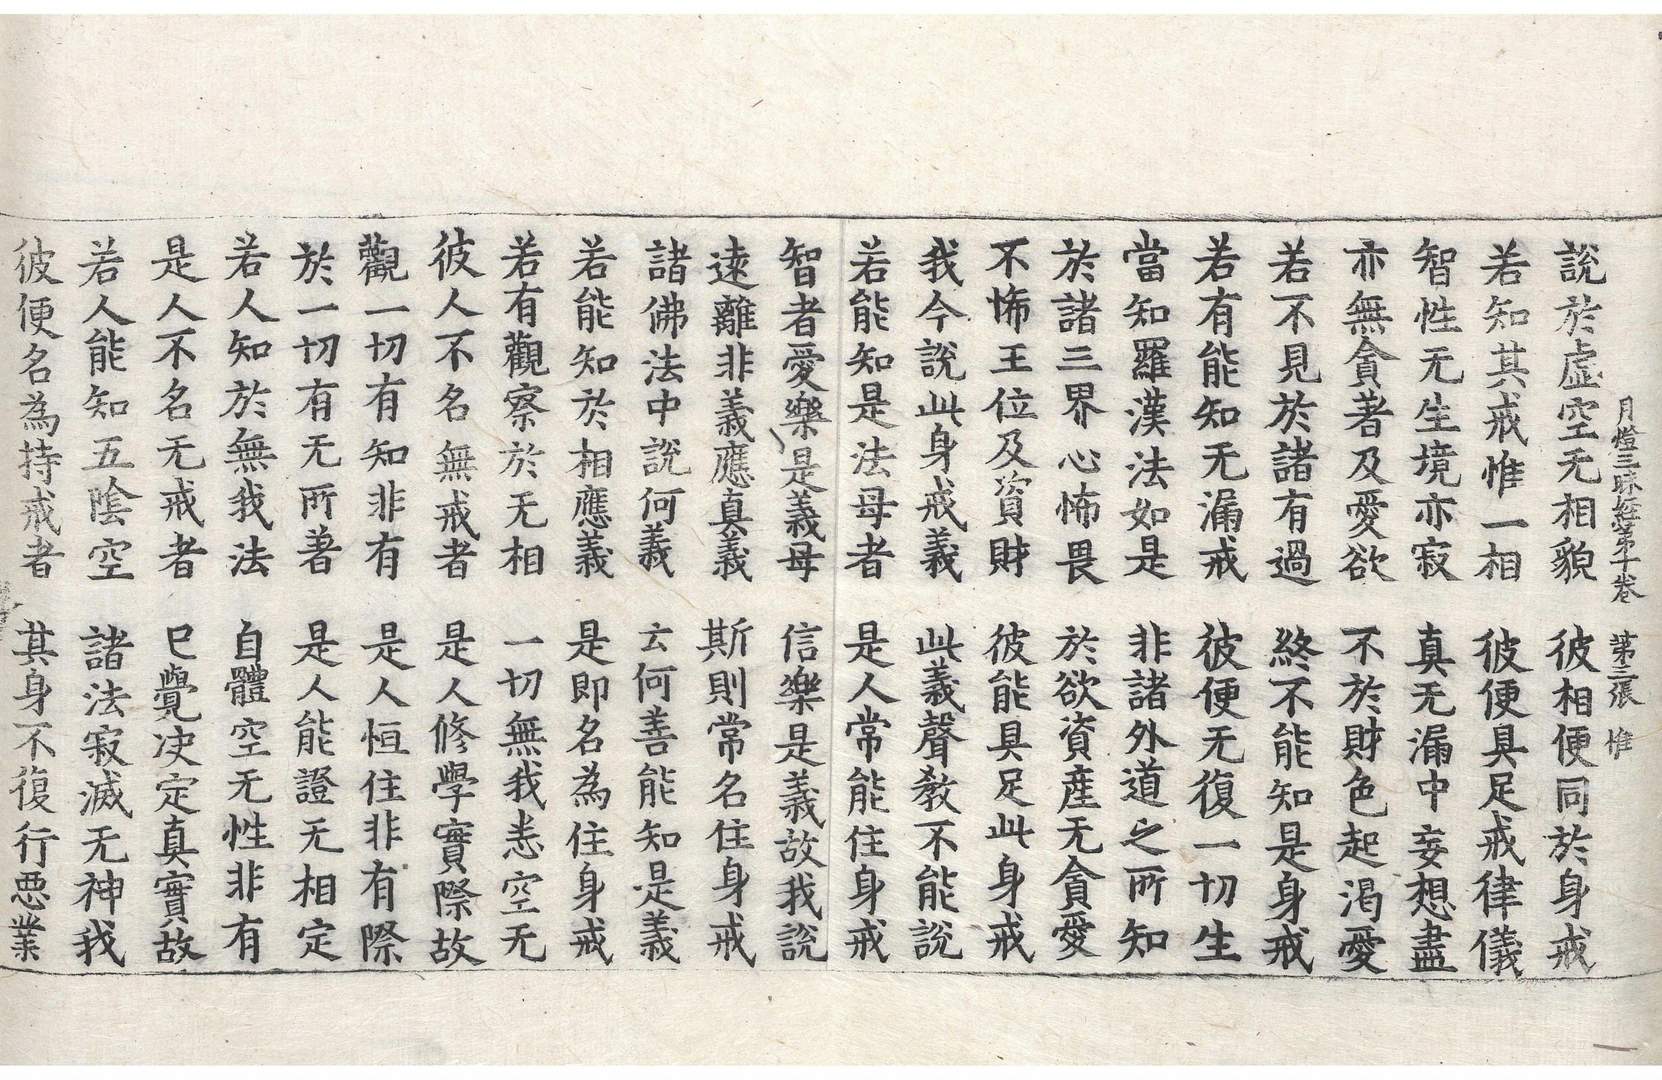 月燈三昧經第十卷 第三張 惟
說於虛空无相貌 彼相便同於身戒
若知其戒惟一相 彼便具足戒律儀
智性无生境亦寂 真无漏中妄想盡
亦無貪著及愛欲 不於財色起渴愛
若不見於諸有過 終不能知是身戒
若有能知无漏戒 彼便无復一切生
當知羅漢法如是 非諸外道之所知
於諸三界心怖畏 於欲資產无貪愛
不怖王位及資財 彼能具足此身戒
我今說此身戒義 此義聲教不能說
若能知是法母者 是人常能住身戒
智者愛樂是義母 信樂是義故我說
遠離非義應真義 斯則常名住身戒
諸佛法中說何義 云何善能知是義
若能知於相應義 是即名為住身戒
若有觀察於无相 一切無我悉空无
彼人不名無戒者 是人修學實際故
觀一切有知非有 是人恒住非有際
於一切有无所著 是人能證无相定
若人知於無我法 自體空无性非有
是人不名无戒者 已覺决定真實故
若人能知五陰空 諸法寂滅无神我
彼便名為持戒者 其身不復行惡業